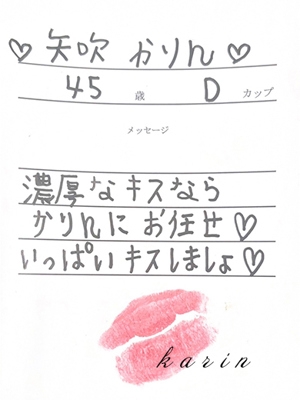 ♡ 矢吹 かりん ♡
45 歳 D カップ
メッセージ
濃厚なキスなら
かりんにお任せ♡
いっぱいキスしましょ♡
karin